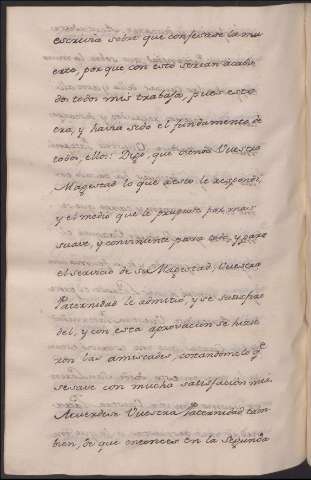 escriuia sobre que confesase la mu
erte, por que con esto serian acaba
dos todos mis trabajos, pues esto
era, y hauia sido el fundamento de
todos ellos: Digo, que viendo Vuestra
Magestad lo que a esto le respondi,
y el medio que le propuse por mas
suave, y conviniente para todo, y para
el servicio de su Magestad; Vuestra
Paternidad le admitio, y se satisfizo
del, y con esta aprovacion se hicie
ron las amistades, contandomelo q.e
se save con mucha satisfación mia.
Acuerdese Vuestra Paternidad tam
bien, de que entonces en la segunda